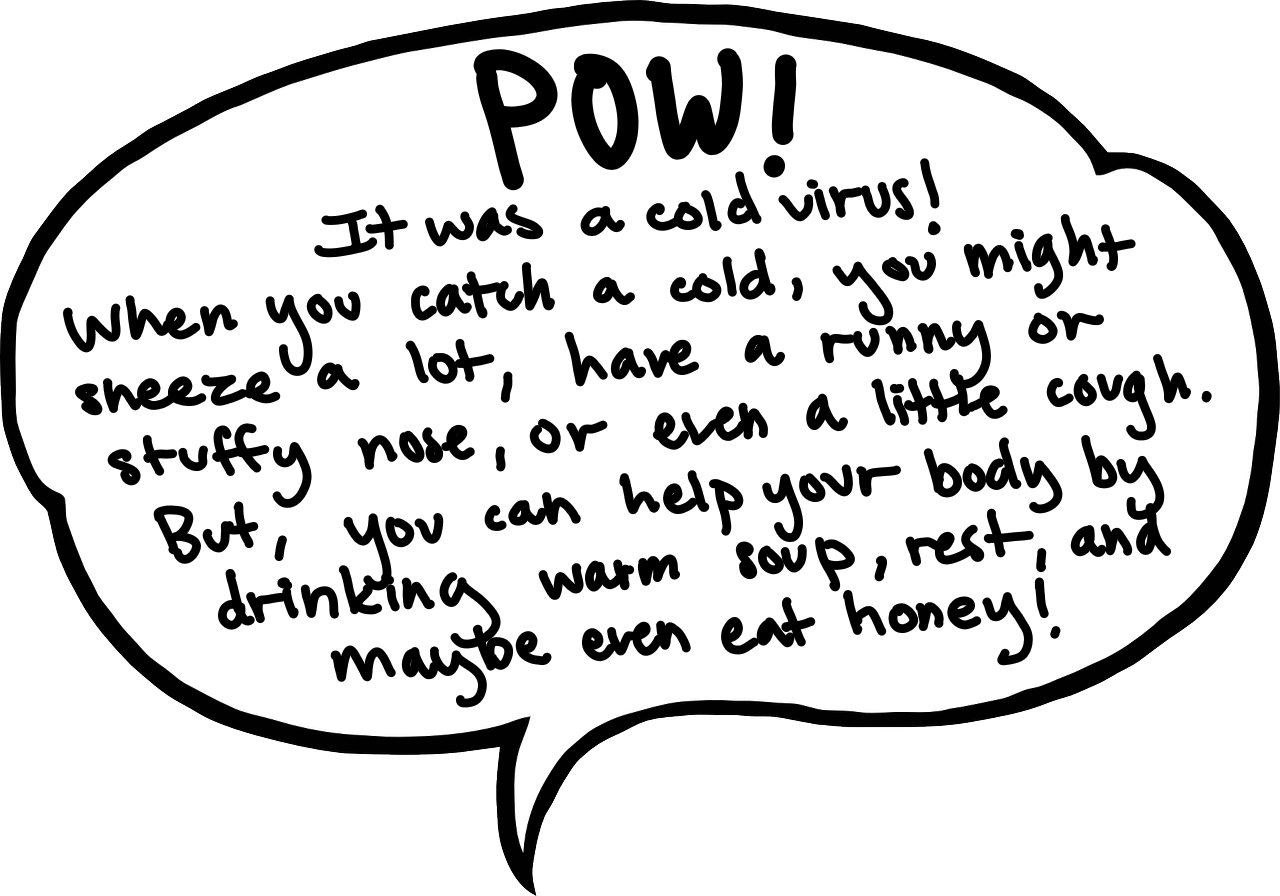 POW!
It was a cold virus!
When you catch a cold, you might
sneeze a lot, have a runny or
stuffy nose, or even a little cough.
But, you can help your body by
drinking warm soup, rest, and
maybe even eat honey!